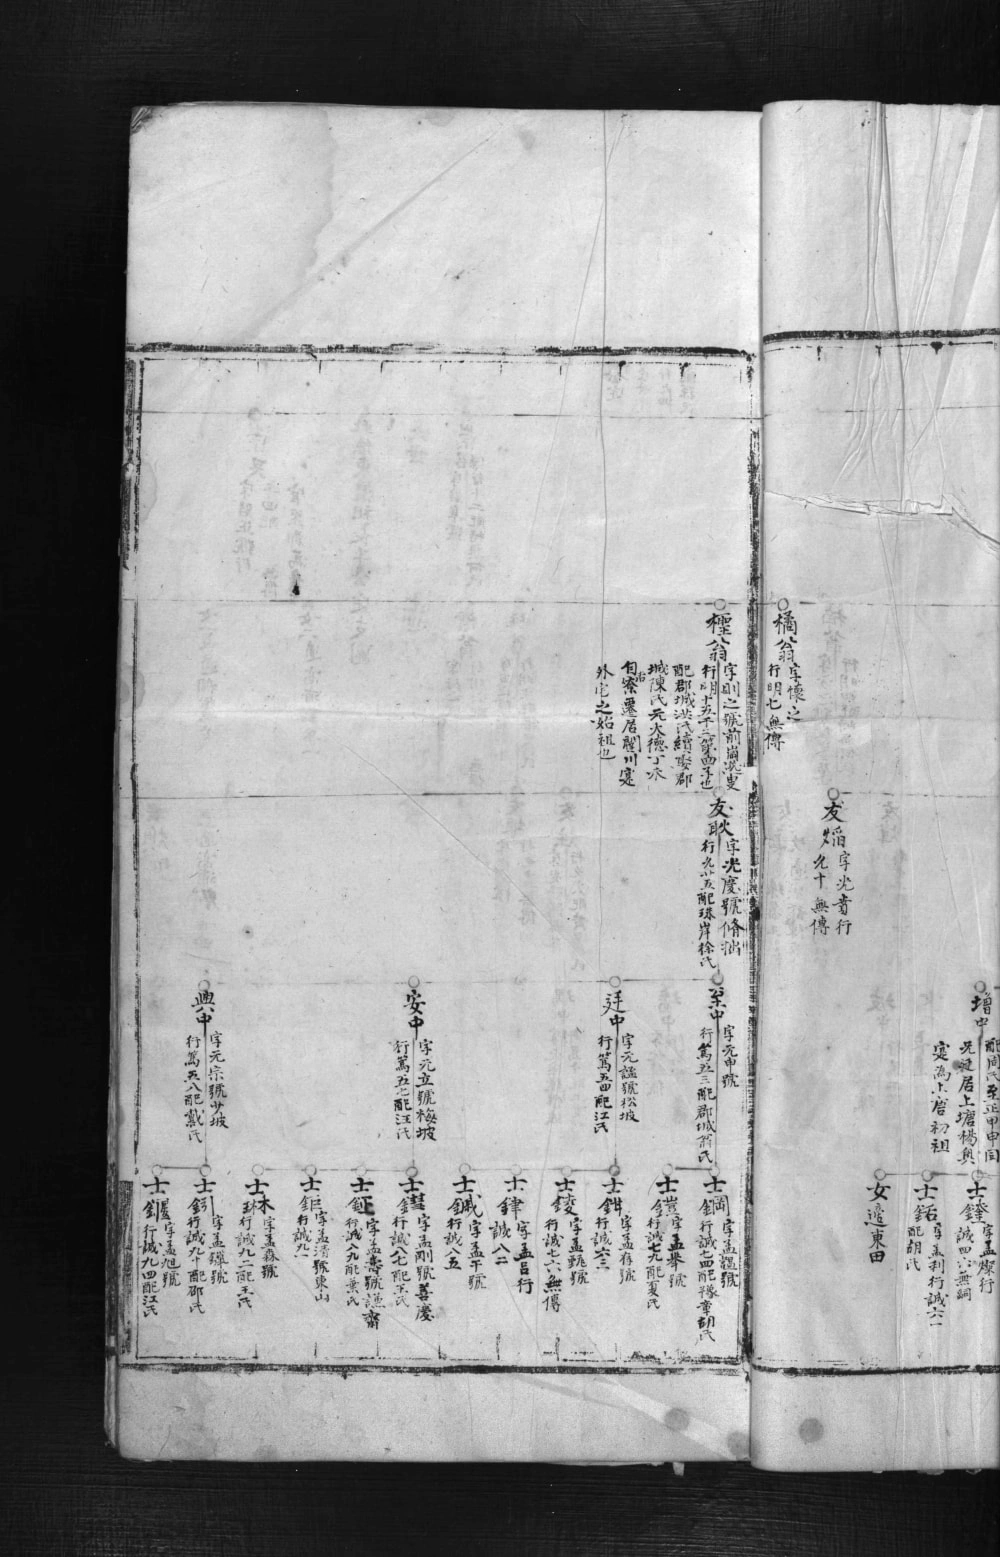 橘翁字懷之
行明七無傳
友
字光貴行
允十無傳
增中
配周氏至正甲申同
兄從居上塘楊奥
寔為上唐初祖
士鏱字孟燦行
誠四六無嗣
士鉐字孟利行誠六一
配胡氏
女適東田
檉翁字則之號前崗漫叟
行明十五千三第四子也
配郡城洪氏續娶郡
城陳氏元大德丁未
自寮遷居閣川寔
外宅之始祖也
友耿字光慶號脩拙
行允廿五配珠岸徐氏
至中字元申號
行篤五三配郡城翁氏
廷中字元謐號松坡
行篤五四配江氏
安中字元立號梅坡
行篤五七配汪氏
興中字元宗號少坡
行篤五八配戴氏
士鋼字孟韞號
行誠七四配豫章胡氏
士鎧字孟舉號
行誠七九配夏氏
士鉡字孟存號
行誠六三
士錂字孟 號
行誠七六無傳
士銉字孟呂行
誠八二
士鋮字孟平號
行誠八五
士鏏字孟剛號善慶
行誠八七配王氏
士鉦字孟濤號謙齋
行誠八九配葉氏
士鉅字孟清號東山
行誠九一
士 字孟森號
行誠九二配王氏
士釴字孟璣號
行誠九十配邵氏
士 字孟旭號
行誠九四配江氏